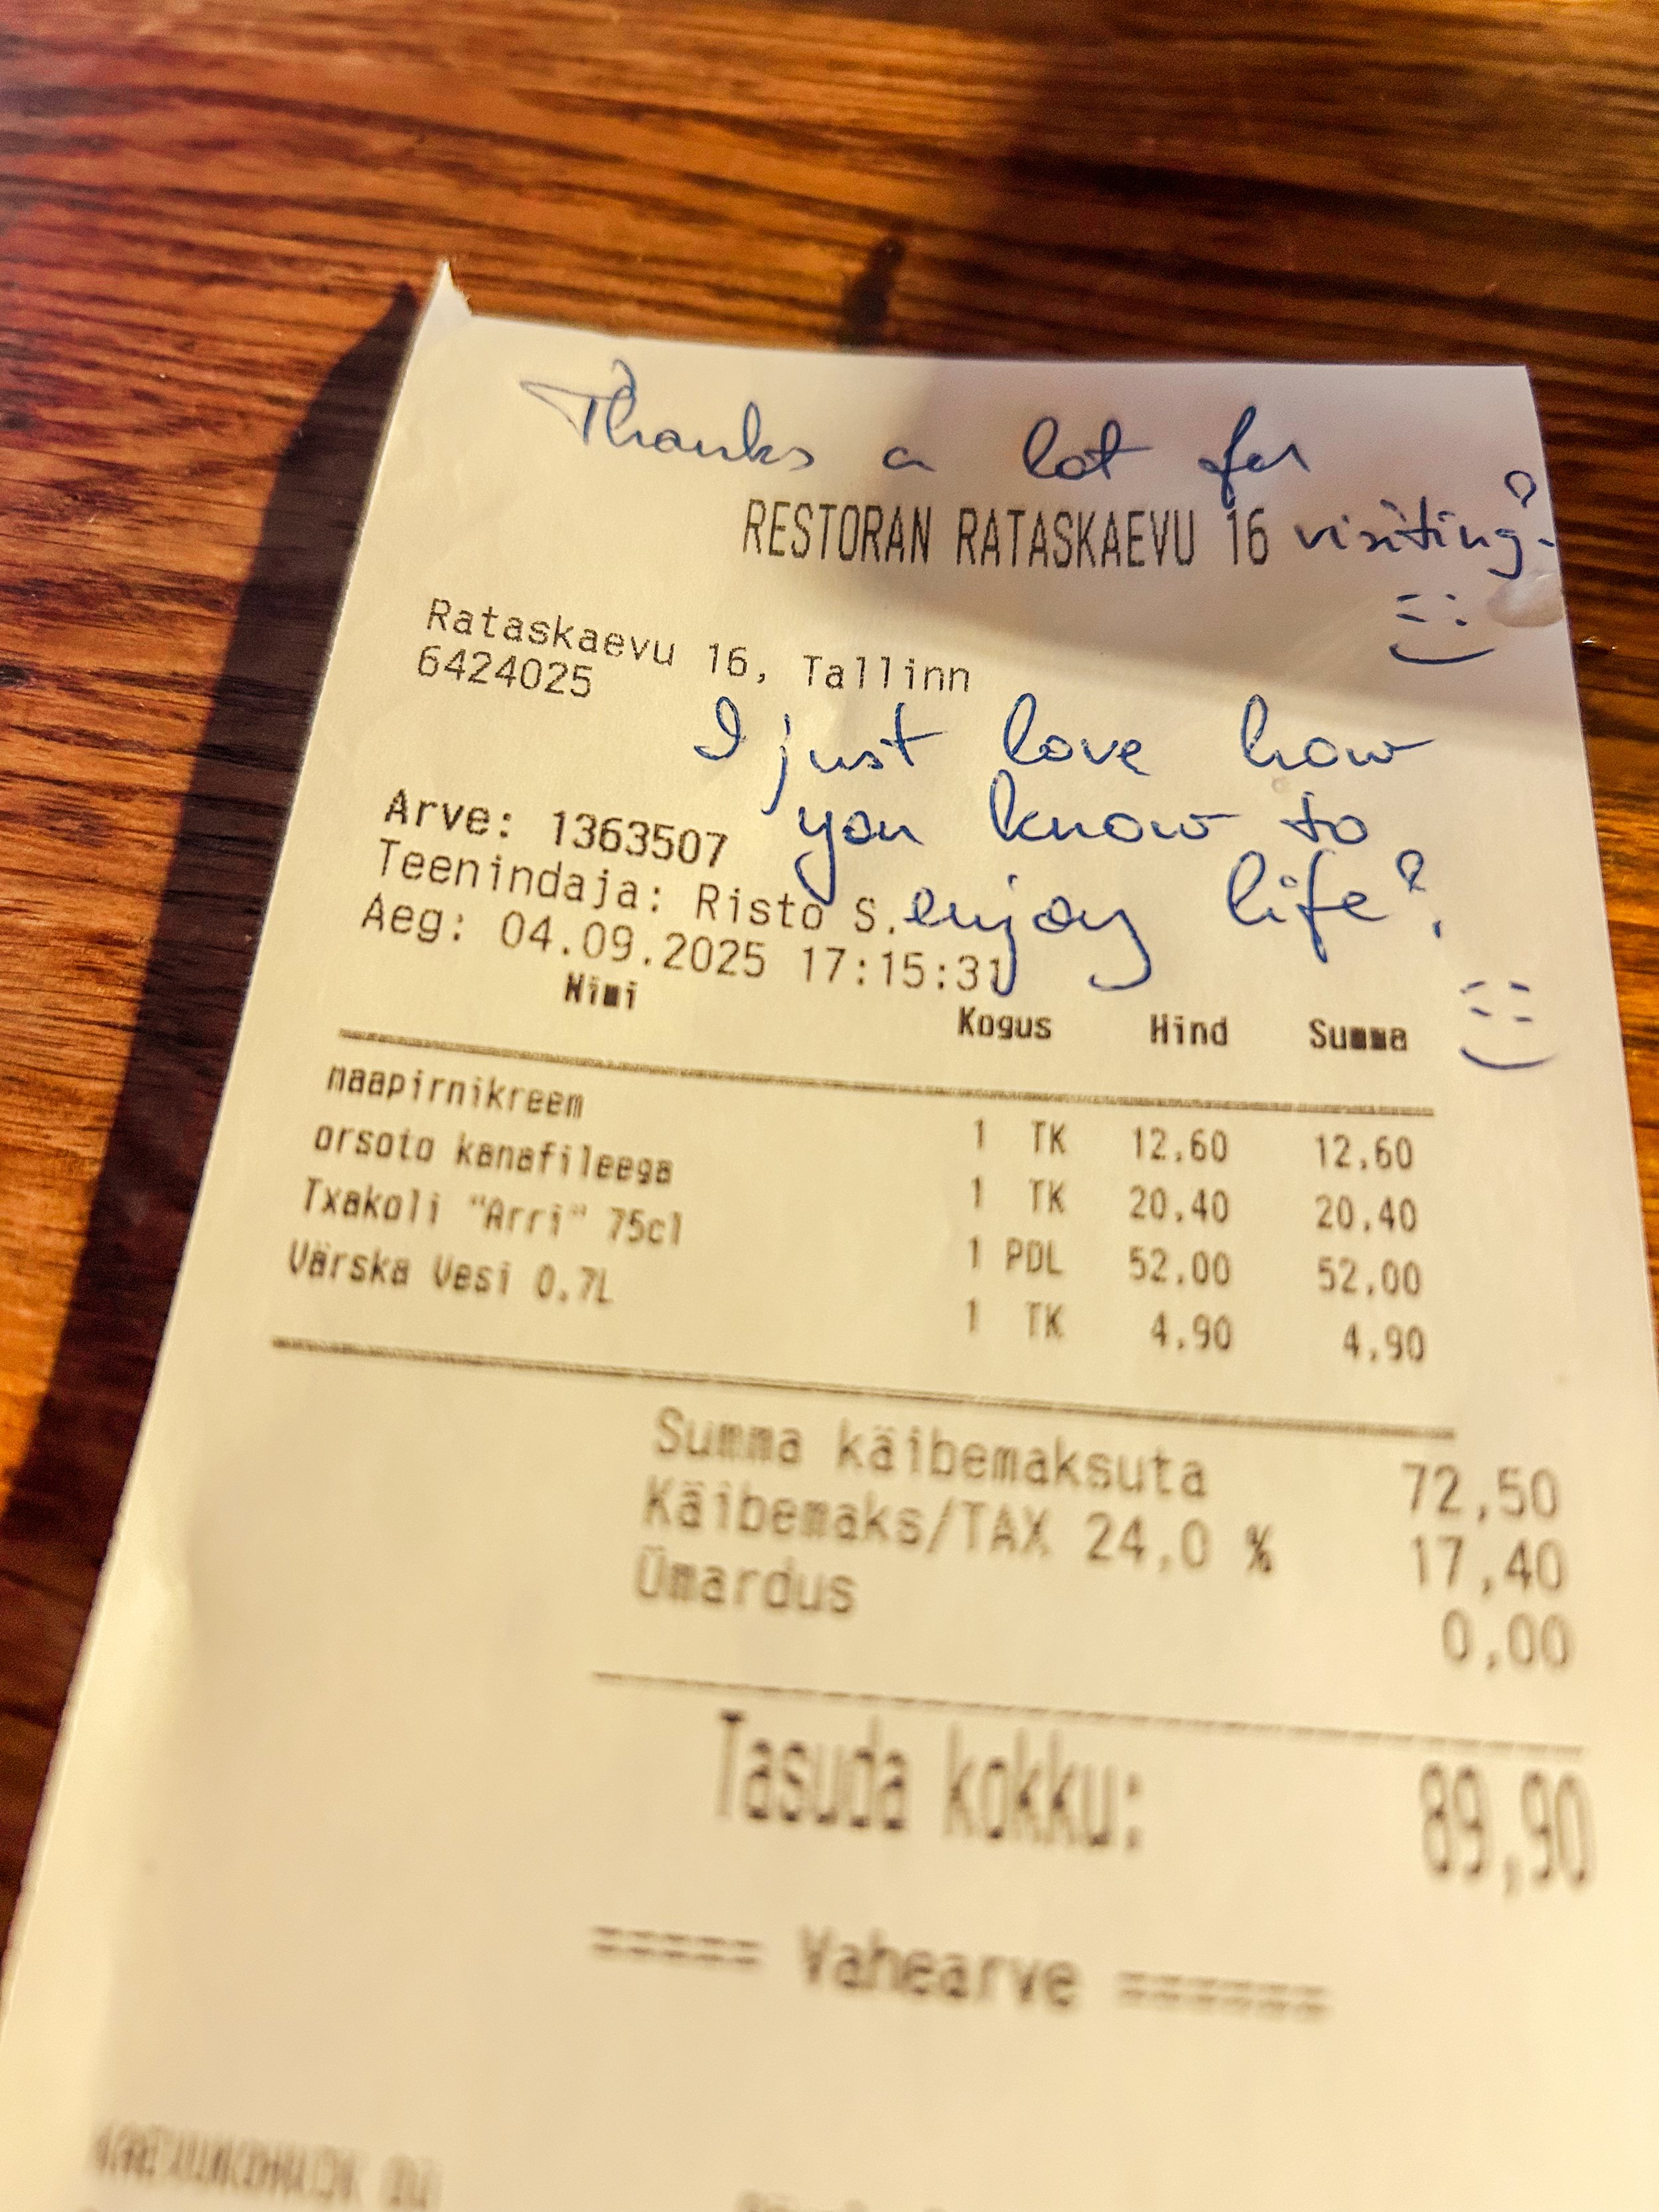 Thanks a lot for
RESTORAN RATASKAEVU 16 visiting!
Rataskaevu 16, Tallinn
6424025
I just love how
you know to
enjoy life!
Arve: 1363507
Teenindaja: Risto S.
Aeg: 04.09.2025 17:15:31
Nimi Kogus Hind Summa
maapirnikreem 1 TK 12.60 12.60
orsoto kanafileega 1 TK 20.40 20.40
Txakoli "Arri" 75cl 1 PDL 52.00 52.00
Värska Vesi 0.7L 1 TK 4.90 4.90
Summa käibemaksuta 72,50
Käibemaks/TAX 24,0 % 17,40
Ümardus 0,00
Tasuda kokku: 89,90
===== Vahearve ======